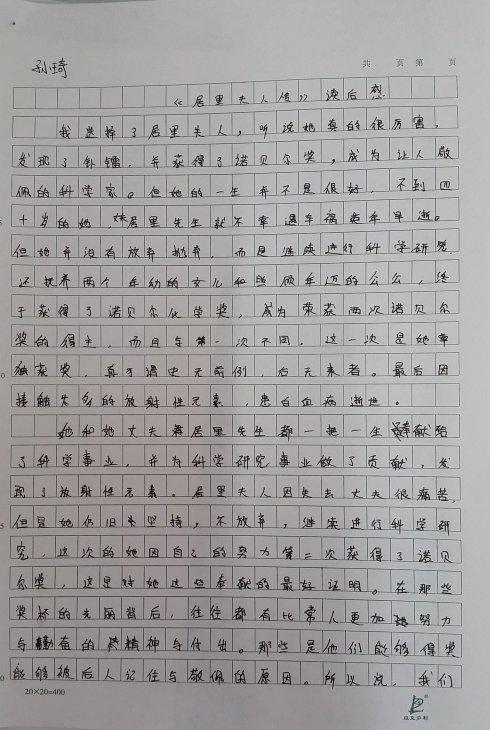 孙琦
共 页 第 页
《居里夫人传》读后感
我选择了居里夫人，听说她真的很厉害，
发现了钋镭，并获得了诺贝尔奖，成为让人敬
佩的科学家。但她的一生并不是很好，不到四
十岁的她，居里先生就不幸遇车祸英年早逝。
但她并没有放弃抛弃，而是继续进行科学研究，
还抚养两个年幼的女儿和照顾年迈的公公，终
于获得了诺贝尔化学奖，成为荣获两次诺贝尔
奖的得主，而且与第一次不同，这一次是她单
独获奖，真可谓史无前例，后无来者。最后因
接触太多的放射性元素，患白血病逝世。
她和她丈夫居里先生都一把一生奉献给
了科学事业，并为科学研究事业做了贡献，发
现了放射性元素。居里夫人因失去丈夫很痛苦，
但是她仍旧坚持，不放弃，继续进行科学研
究，这次的她因自己的努力第二次获得了诺贝
尔奖，这是对她这些奉献的最好证明。在那些
奖杯的光丽背后，往往都有比常人更加努力
与勤奋的精神与付出。那些是他们能够得奖
能够被后人记住与敬佩的原因。所以说，我们
20×20=400